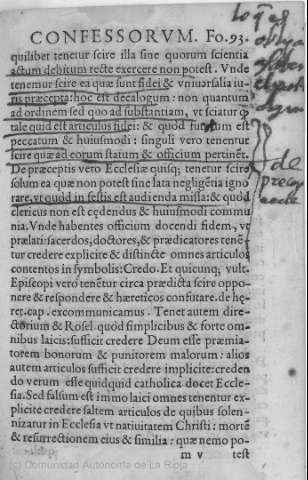 CONFESSORVM. Fo. 93.
quilibet tenetur scire illa sine quorum scientia
actum debitum recte exercere non potest. Vnde
tenemur scire ea quæ sunt fidei & vniuersalia iu-
ris præcepta: hoc est decalogum: non quantum
ad ordinem sed quo ad substantiam, vt sciatur
tale quid est articulus fidei: & quod furtum est
peccatum & huiusmodi: singuli vero tenentur
scire quæ ad eorum statum & officium pertinet.
De præceptis vero Ecclesiæ quisq; tenetur scire
solum ea quæ non potest sine lata negligētia igno
rare, vt quod in festis est audienda missa: & quod
clericus non est cędendus & huiusmodi commu
nia. Vnde habentes officium docendi fidem, vt
prælati sacerdos, doctores, & prædicatores tenē-
tur credere explicite & distincte omnes articulos
contentos in symbolis: Credo. Et quicunq; vult.
Episcopi vero tenētur circa prædicta scire oppo
nere & respondere & hæreticos confutare. de hę-
ret. cap. excommunicamus. Tenet autem dire-
ctorium & Rosel. quod simplicibus & forte om-
nibus laicis: sufficit credere Deum esse præmia-
torem bonorum & punitorem malorum: alios
autem articulos sufficit credere implicite: creden
do verum esse quidquid catholica docet Eccle-
sia. Sed falsum est immo laici omnes tenentur ex-
plicite credere saltem articulos de quibus solen-
nizatur in Ecclesia vt natiuitatem Christi: mortē
& resurrectionem eius & similia: quæ nemo po-
m v test
de
(c) Comunidad Autónoma de La Rioja